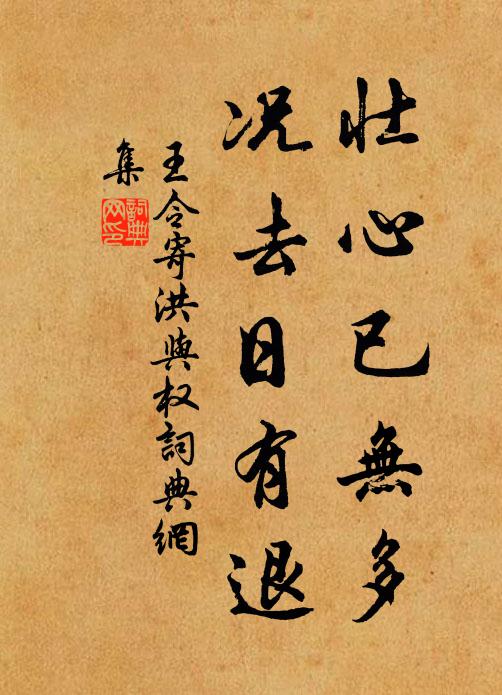 壮心已無多
况去日有退
王令寄洪與权詞典網
集
詞典
网印